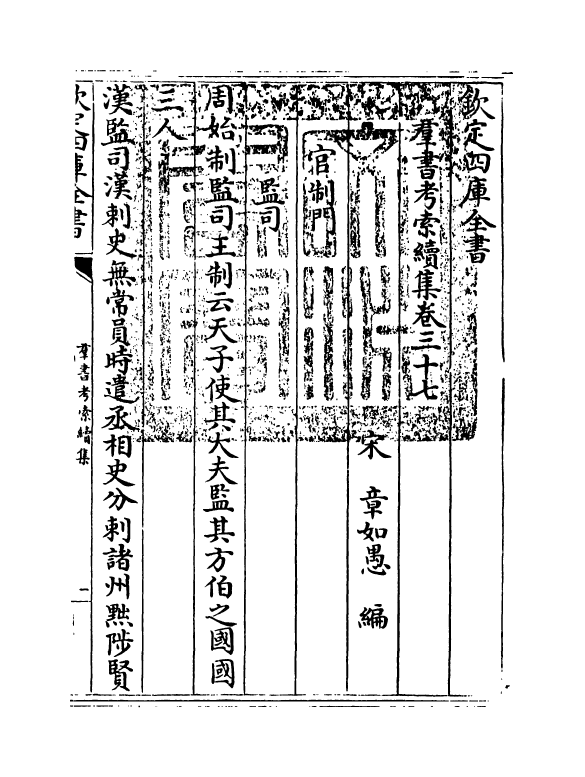 欽定四庫全書
羣書考索續集卷三十七
宋　章如愚　編
官制門
監司
周始制監司王制云天子使其大夫監其方伯之國國
三人
漢監司漢刺史無常員時遣丞相史分刺諸州黜陟賢
欽定四庫全書
羣書考索續集